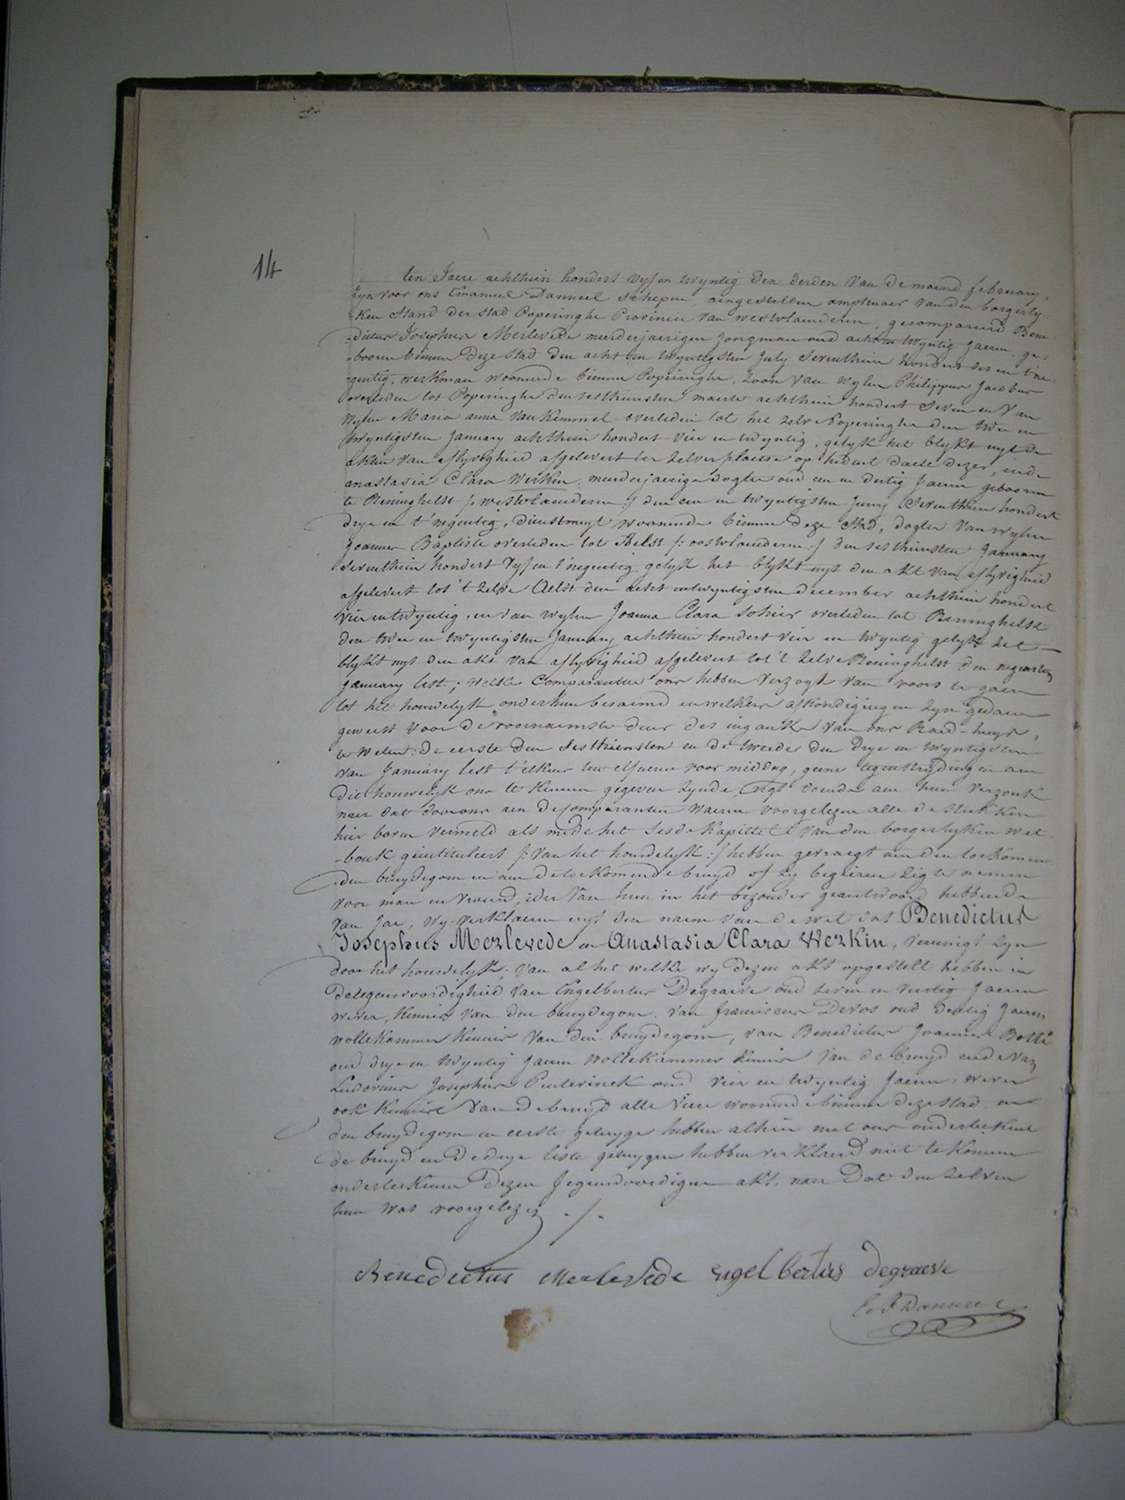 14
ten Jaere achthien hondert vyf en twyntig den derden van de maend february,
zyn voor ons Emanuel Danneel schepen, aengestellen amptenaer van den borgerly-
-ken stand der stad Poperinghe Provincie van westvlaenderen, gecompareerd Bene-
-dictus Josephus Merlevede meerderjaerigen jongman oud acht en twyntig jaeren, ge-
-booren binnen deze stad den acht en twyntigsten July seventhien hondert ses en t'ne-
-gentig, werkman woonende binnen Poperinghe, zoon van wylen Philippus Jacobus
overleden tot Poperinghe den sesthiensten maerte achthien hondert seven en van
wylen Maria anna Van Kemmel overleden tot het zelve Poperinghe den twee en
twyntigsten January achthien hondert vier en twyntig, gelyk het blykt uyt de
akten van aflyvigheid afgelevert ter zelver plaetse op heden daete dezer, ende
anastasia Clara Werkin, meerderjaerige dogter oud een en dertig jaeren gebooren
te Reninghelst /: westvlaenderen :/ den een en twyntigsten Juny seventhien hondert
drye en t'negentig, dienstmeyt woonende binnen deze stad, dogter van wylen
Joannes Baptiste overleden tot Aelst /: oostvlaenderen :/ den sesthiensten January
seventhien hondert vyf en t'negentig gelyk het blykt uyt den akt van aflyvigheid
afgelevert tot 't zelve Aelst den acht en twyntigsten december achthien hondert
vier en twyntig, en van wylen Joanna Clara Sohier overleden tot Reninghelst
den twee en twyntigsten January achthien hondert vier en twyntig gelyk het
blykt uyt den akt van aflyvigheid afgelevert tot 't zelve Reninghelst den negensten
January lest; welke Comparanten ons hebben verzogt van voors te gaen
tot het houwelyk onder hun beraemd en welkers afkondigingen zyn gedaen
geweest voor de voornaemste deur des ingank van ons Raed-huys,
te weten: de eerste den sesthiensten en de tweede den drye en twyntigsten
van January lest t'elkens ten elf ueren voor middag, geene tegenstrydingen aen
die houwelyk ons te kennen gegeven zynde, regt doende aen hun verzoek
naer dat door ons aen de Comparanten waeren voorgelezen alle de stukken
hier boven vermeld als mede het sesde kapittel van den borgerlyken wet-
-bouk geintituleert /: van het houwelyk :/ hebben gevraegt aen den toekomen-
-den bruydegom en aen de toekomende bruyd of zy begeiren zig te nemen
voor man en vrouw, ider van hun in het bezonder geantwoord hebbende
van Jae, wy verklaeren uyt den naem van de wet dat Benedictus
Josephus Merlevede en Anastasia Clara Werkin, vereenigt zyn
door het houwelyk; van al het welke wy dezen akt opgestelt hebben in
de tegenwoordigheid van Engelbertus Degraeve oud zeven en veertig jaeren
wever, kennis van den bruydegom, van franciscus Devos oud dertig jaeren
wollekammer kennis van den bruydegom, van Benedictus Joannes Botte
oud drye en twyntig jaeren wollekammer kennis van de bruyd ende van
Ludovicus Josephus oud vier en twyntig jaeren, wever
ook kennis van de bruyd alle viere woonende binnen deze stad, en
den bruydegom en eerste getuyge hebben alhier met ons onderteekent
de bruyd en de drye leste getuygen hebben verklaerd niet te konnen
onderteekenen dezen tegenwoordigen akt, naer dat den zelven
hun was voorgelezen ./.
Benedictus Merlevede Engelbertus degraeve
Danneel